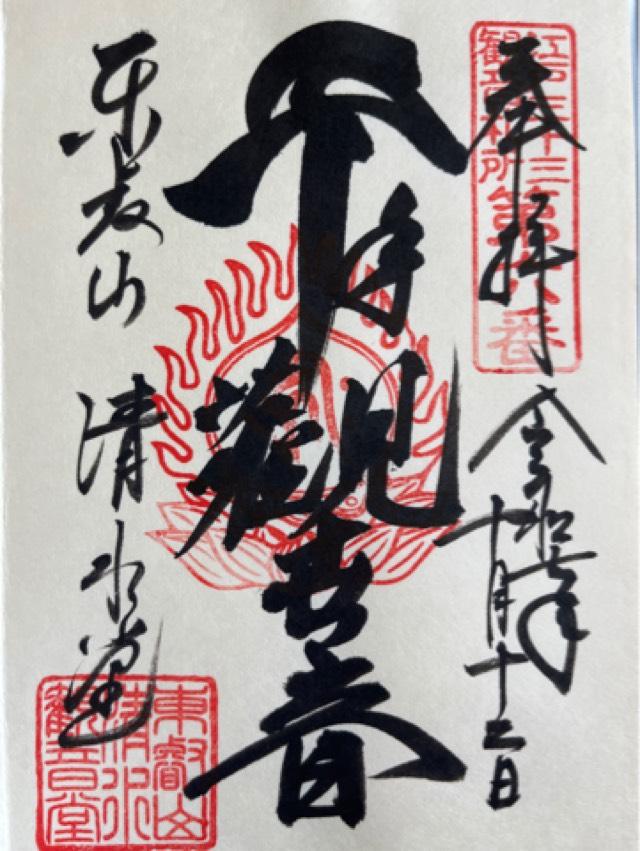 江戸三十三
観音札所
第六番
奉拝
令和七年
十月十二日
千手觀世音
東叡山 清水堂
東叡山
清水
観音堂